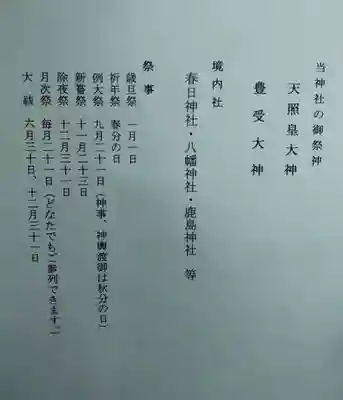 当神社の御祭神
天照皇大神
豊受大神
境内社
春日神社・八幡神社・鹿島神社 等
祭事
歳旦祭 一月一日
祈年祭 春分の日
例大祭 九月二十一日(神事、神輿渡御は秋分の日)
新嘗祭 十一月二十三日
除夜祭 十二月三十一日
月次祭 毎月二十一日(どなたでもご参列できます。)
大祓 六月三十日、十二月三十一日